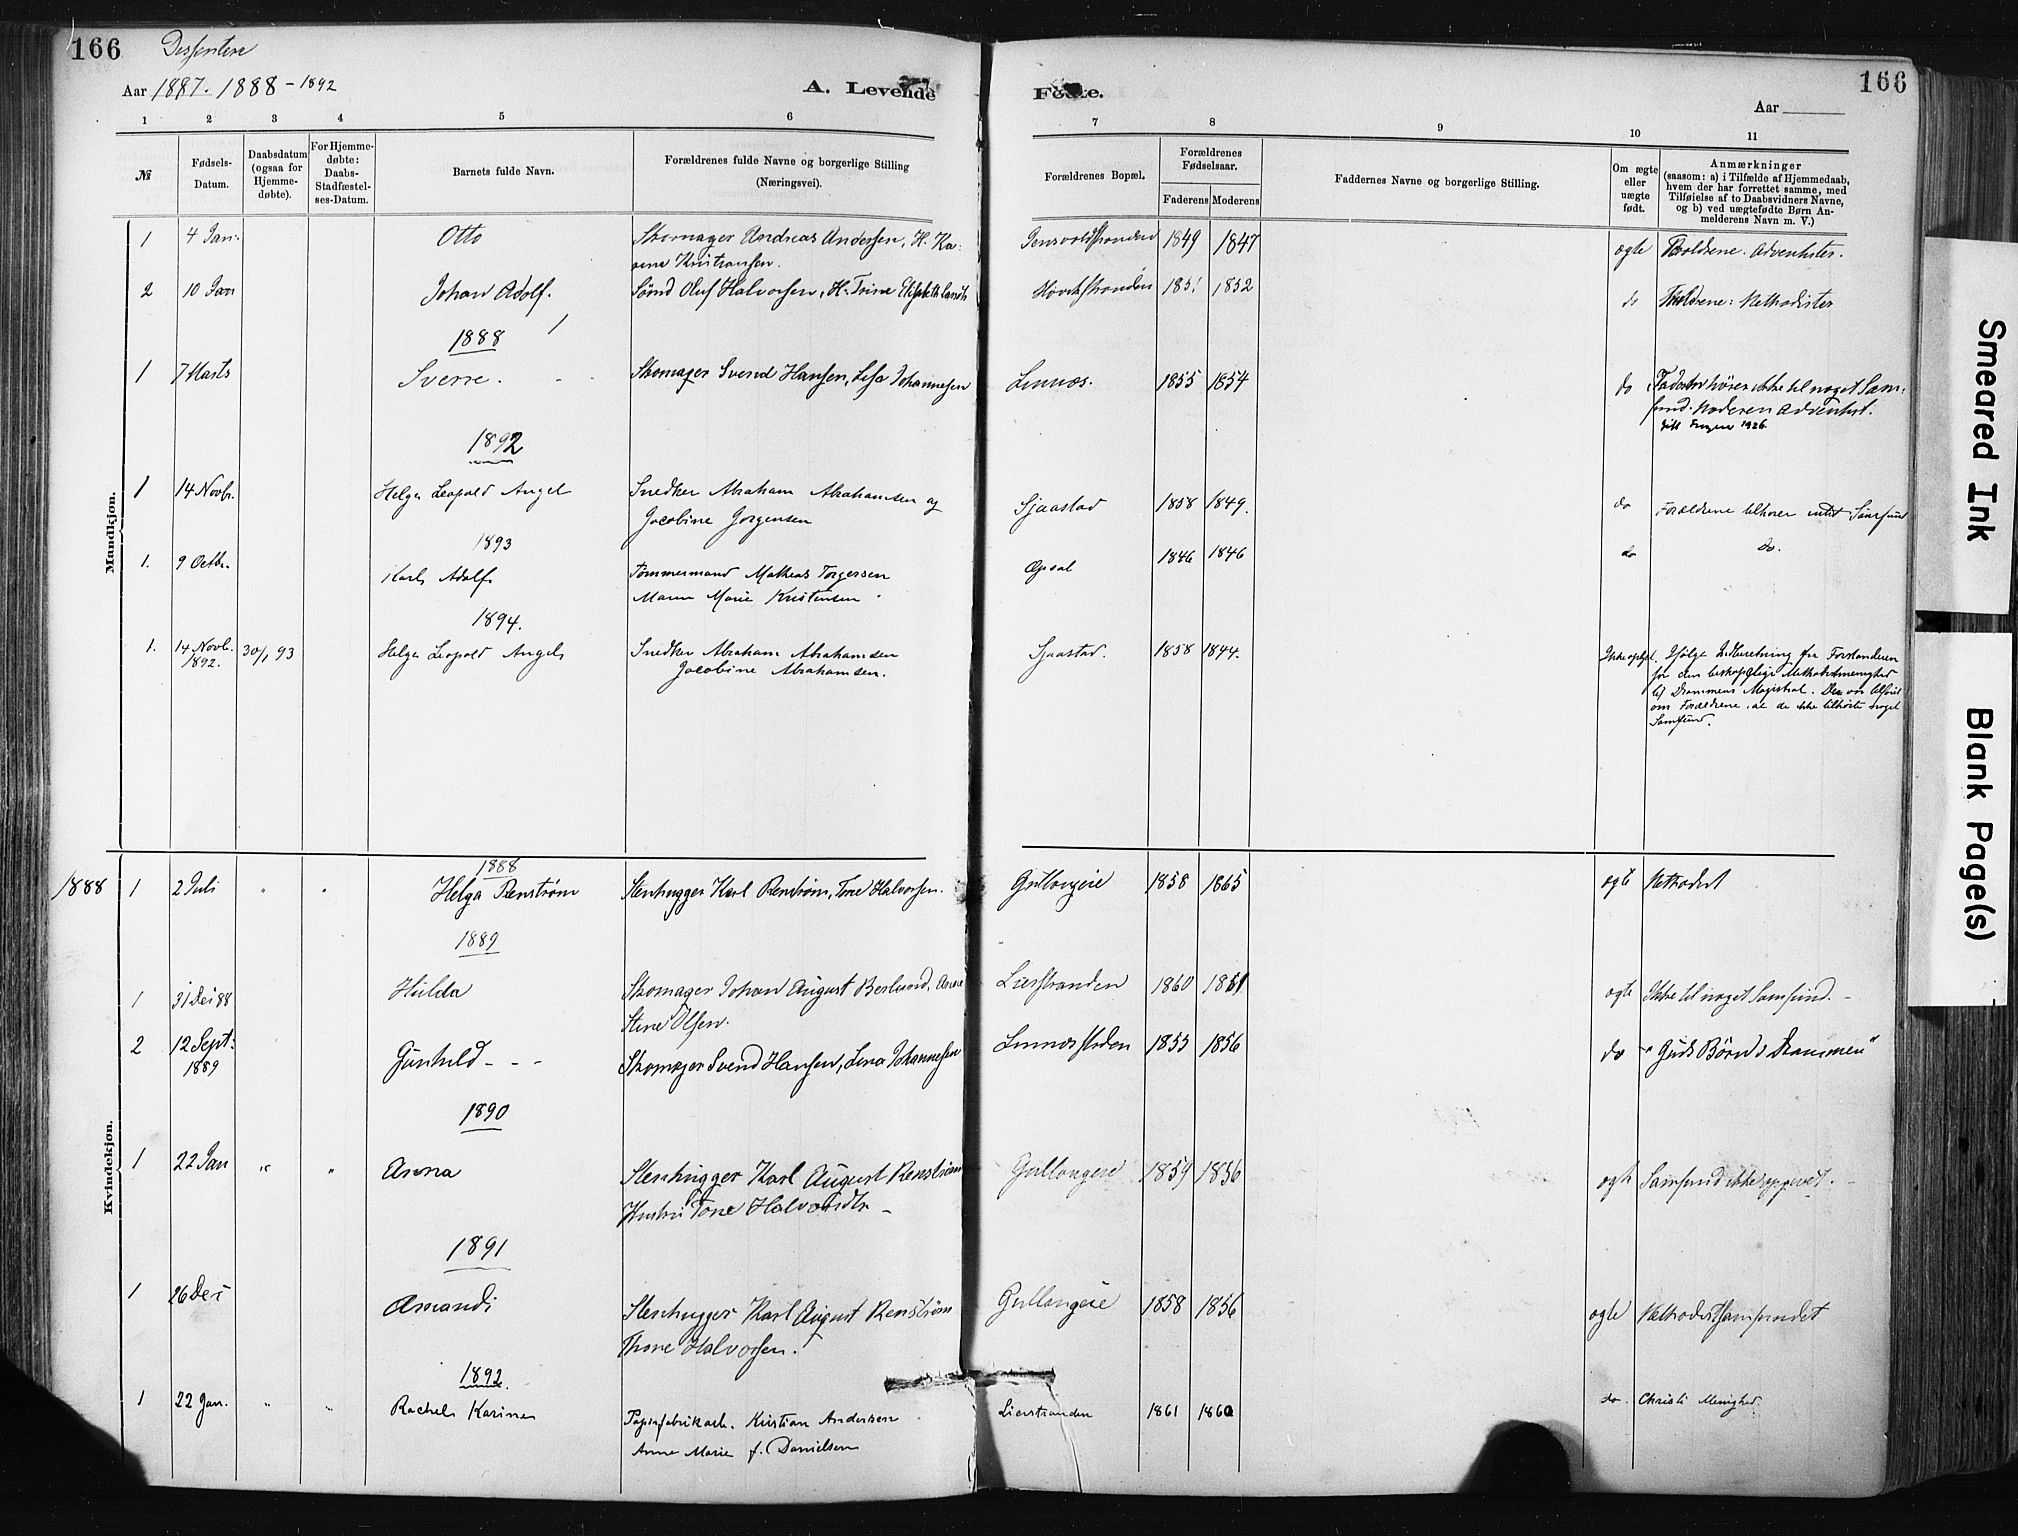 166 Dissentere
Aar 1887. 1888 - 1892 A. Levende Fødte. Aar 166
1 2 3 4 5 6 7 8 9 10 11
№
Fødsels-Datum.
Daabsdatum (ogsaa for Hjemmedøbte).
For Hjemmedøbte: Daabs-Stadfæstelses-Datum.
Barnets fulde Navn.
Forældrenes fulde Navne og borgerlige Stilling (Næringsvei).
Forældrenes Bopæl.
Forældrenes Fødselsaar.
Faderens Moderens
Faddernes Navne og borgerlige Stilling.
Om ægte eller uægte født.
Anmærkninger
(saasom: a) i Tilfælde af Hjemmedaab,
hvem der har forrettet samme, med
Tilføielse af to Daabsvidners Navne,
og b) ved uægtefødte Børn Anmelderens Navn m. V.)
Mandkjøn.
1 4 Jan. Otto Skomager Andreas Andersen, H. Ka- 1849 1847 ægte Forældrene: Adventister.
rine Kristiansen.
2 10 Jan Johan Adolf. Oluf Halvorsen, H. Trine 1852 do Forældrene: Methodister
1888
1 7 Marts Sverre. Skomager Svend Hansen, Lisa Johannesen Linnes. 1855 1854 do Faderen hører ikke til noget Sam-
fund. Moderen Adventist.
1926
1892
1 14 Novb. Helge Leopold Angel Snedker Abraham Abrahamsen og Sjaastad 1858 1849. do Forældrene tilhører intet Samfund
Jacobine Jørgensen
1893
1. 9 Octbr. Karl Adolf Tømmermand Mathias Torgersen Opsal 1846 1846 do do.
Maren Marie Kristensen.
1894.
1. 14 Novb. 1892. 30/1 93 Helge Leopold Angel Snedker Abraham Abrahamsen Sjaastad. 1858 1844. Ikke oplyst. Ifølge Indberetning fra Forstanderen
Jacobine Abrahamsen. for den biskoppelige Methodistmenighed
til Drammens Magistrat. Der var tilføiet
om Forældrene, at de ikke tilhørte noget
Samfund.
Kvindekjøn.
1888
1888 1 2 Juli " " Helga Renstrøm Stenhugger Karl Renstrøm, Tone Halvorsen. Gullaugeie 1858 1865 ægte Methodist
1889
1 31 Dec 88 Hulda Skomager Johan August Berlund, Anne Lierstranden 1860 1851 ægte Ikke til noget Samfund. -
Stine Olsen.
2 12 Sept. 1889 Gunhild - - - Skomager Svend Hansen, Lina Johannesen 1855 1856 do "Guds Børn i Drammen"
1890
1 22 Jan " " Anna Stenhugger Karl August Renstrøm Gullaugeie 1859 1856 ægte Samfund ikke opgivet. -
Hustru Tone Halvorsdtr -
1891
1 26 Dec Amandi Stenhugger Karl August Renstrøm Gullaugeie 1858 1856 ægte Methodistsamfundet
Thone Halvorsen.
1892.
1 22 Jan. " " Rachel Karine Papirfabrikarb. Kristian Andersen Lierstranden 1861 1860 do. Christi Menighed
Anne Marie f. Danielsen
Smeared Ink
Blank Page(s)